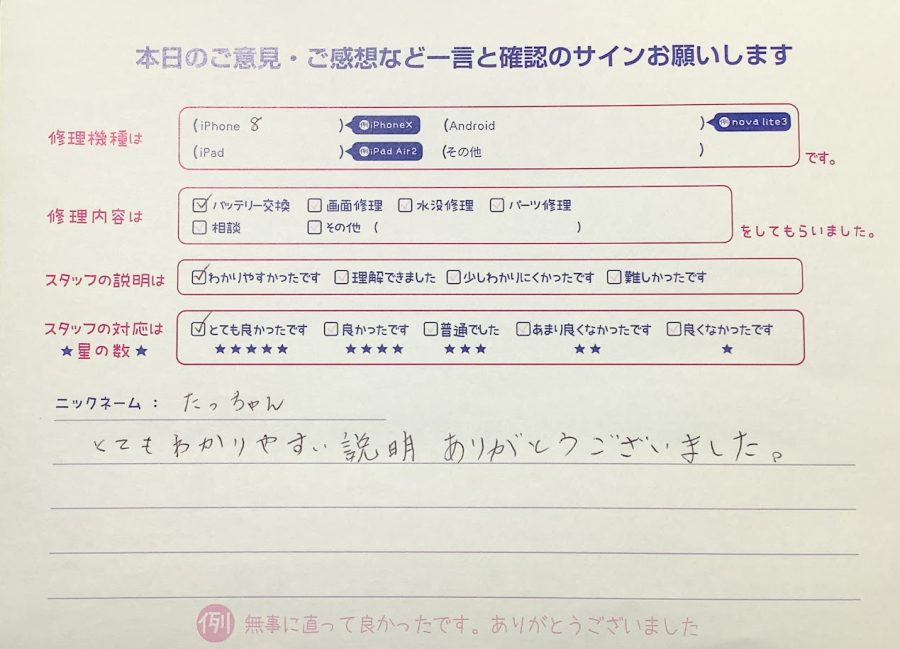 本日のご意見・ご感想など一言と確認のサインお願いします
修理機種は
(iPhone 8 ) 例iPhoneX (Android ) 例nova lite3
(iPad ) 例iPad Air2 (その他 ) です。
修理内容は
バッテリー交換 画面修理 水没修理 パーツ修理
相談 その他 ( ) をしてもらいました。
スタッフの説明は わかりやすかったです 理解できました 少しわかりにくかったです 難しかったです
スタッフの対応は とても良かったです 良かったです 普通でした あまり良くなかったです 良くなかったです
★星の数★ ★★★★★ ★★★★ ★★★ ★★ ★
ニックネーム： たっちゃん
とてもわかりやすい説明 ありがとうございました。
例 無事に直って良かったです。ありがとうございました